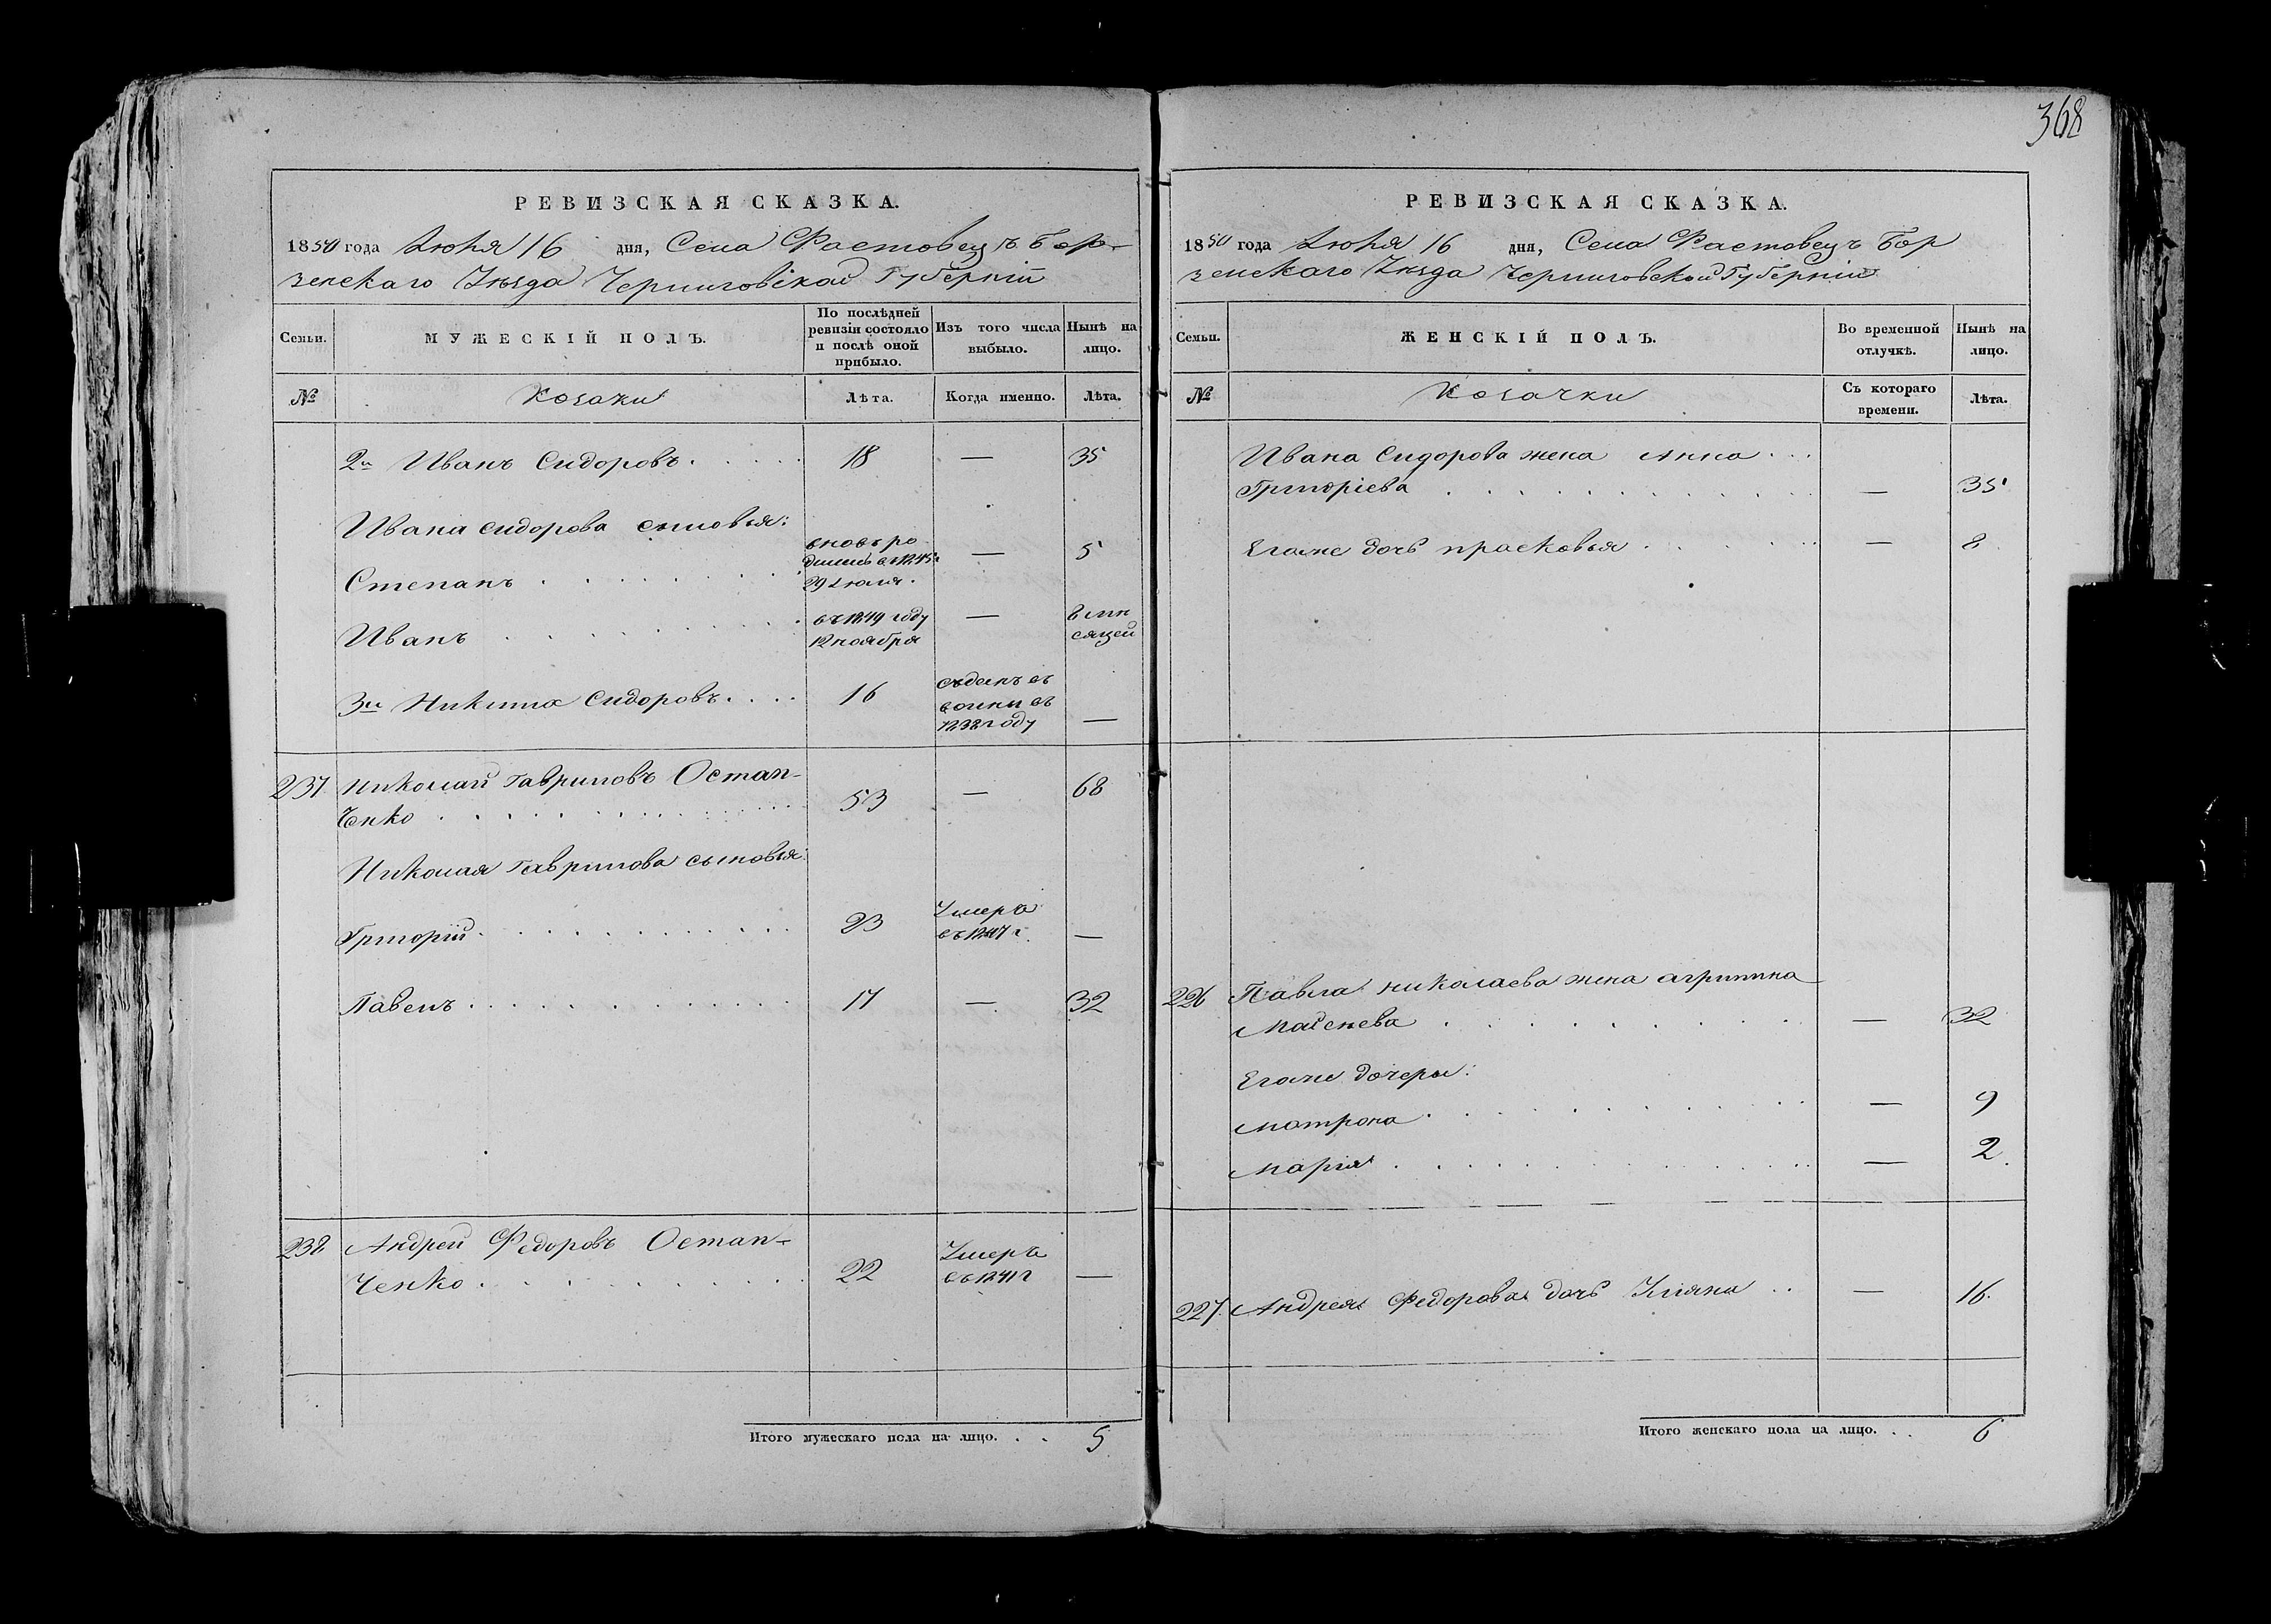 368
РЕВИЗСКАЯ СКАЗКА.
1850 года Июня 16 дня, Села Фастовецъ Бор-
зенскаго Уѣзда Черниговской Губерніи
Семьи.
МУЖЕСКІЙ ПОЛЪ.
По послѣдней ревизіи состояло и послѣ оной прибыло.
Изъ того числа выбыло.
Нынѣ на лицо.
№
Козаки
Лѣта.
Когда именно.
Лѣта.
2й Иванъ Сидоровъ. 18 — 35
Ивана Сидорова сыновья:
Степанъ
вновь ро
дился въ 1845г
29 Июля.
— 5
Иванъ
въ 1849 году
12 ноября
—
8 мѣ
сяцей
3й Никита Сидоровъ. 16
въ
1832 году
—
237 Николай Гавриловъ Остап-
ченко 53 — 68
Николая Гаврилова сыновья:
Григорій. 23
Умеръ
въ 1847 г.
—
Павелъ. 17 — 32
238 Андрей Федоровъ Остап-
ченко. 22
Умеръ
въ 1841 г
—
Итого мужескаго пола на лицо. . . 5
РЕВИЗСКАЯ СКАЗКА.
1850 года Июня 16 дня, Села Фастовецъ Бор
зенскаго Уѣзда Черниговской Губерніи
Семьи.
ЖЕНСКІЙ ПОЛЪ.
Во временной отлучкѣ.
Нынѣ на лицо.
№
Козачки
Съ котораго времени.
Лѣта.
Ивана Сидорова жена Анна
Григоріева — 35
Егоже дочь Прасковья — 8
226 Павла Николаева жена Агрипина
— 32
Егоже дочеры:
Матрона — 9
Марія — 2
227 Андрея Федорова дочь Уліяна — 16.
Итого женскаго пола на лицо. . . 6